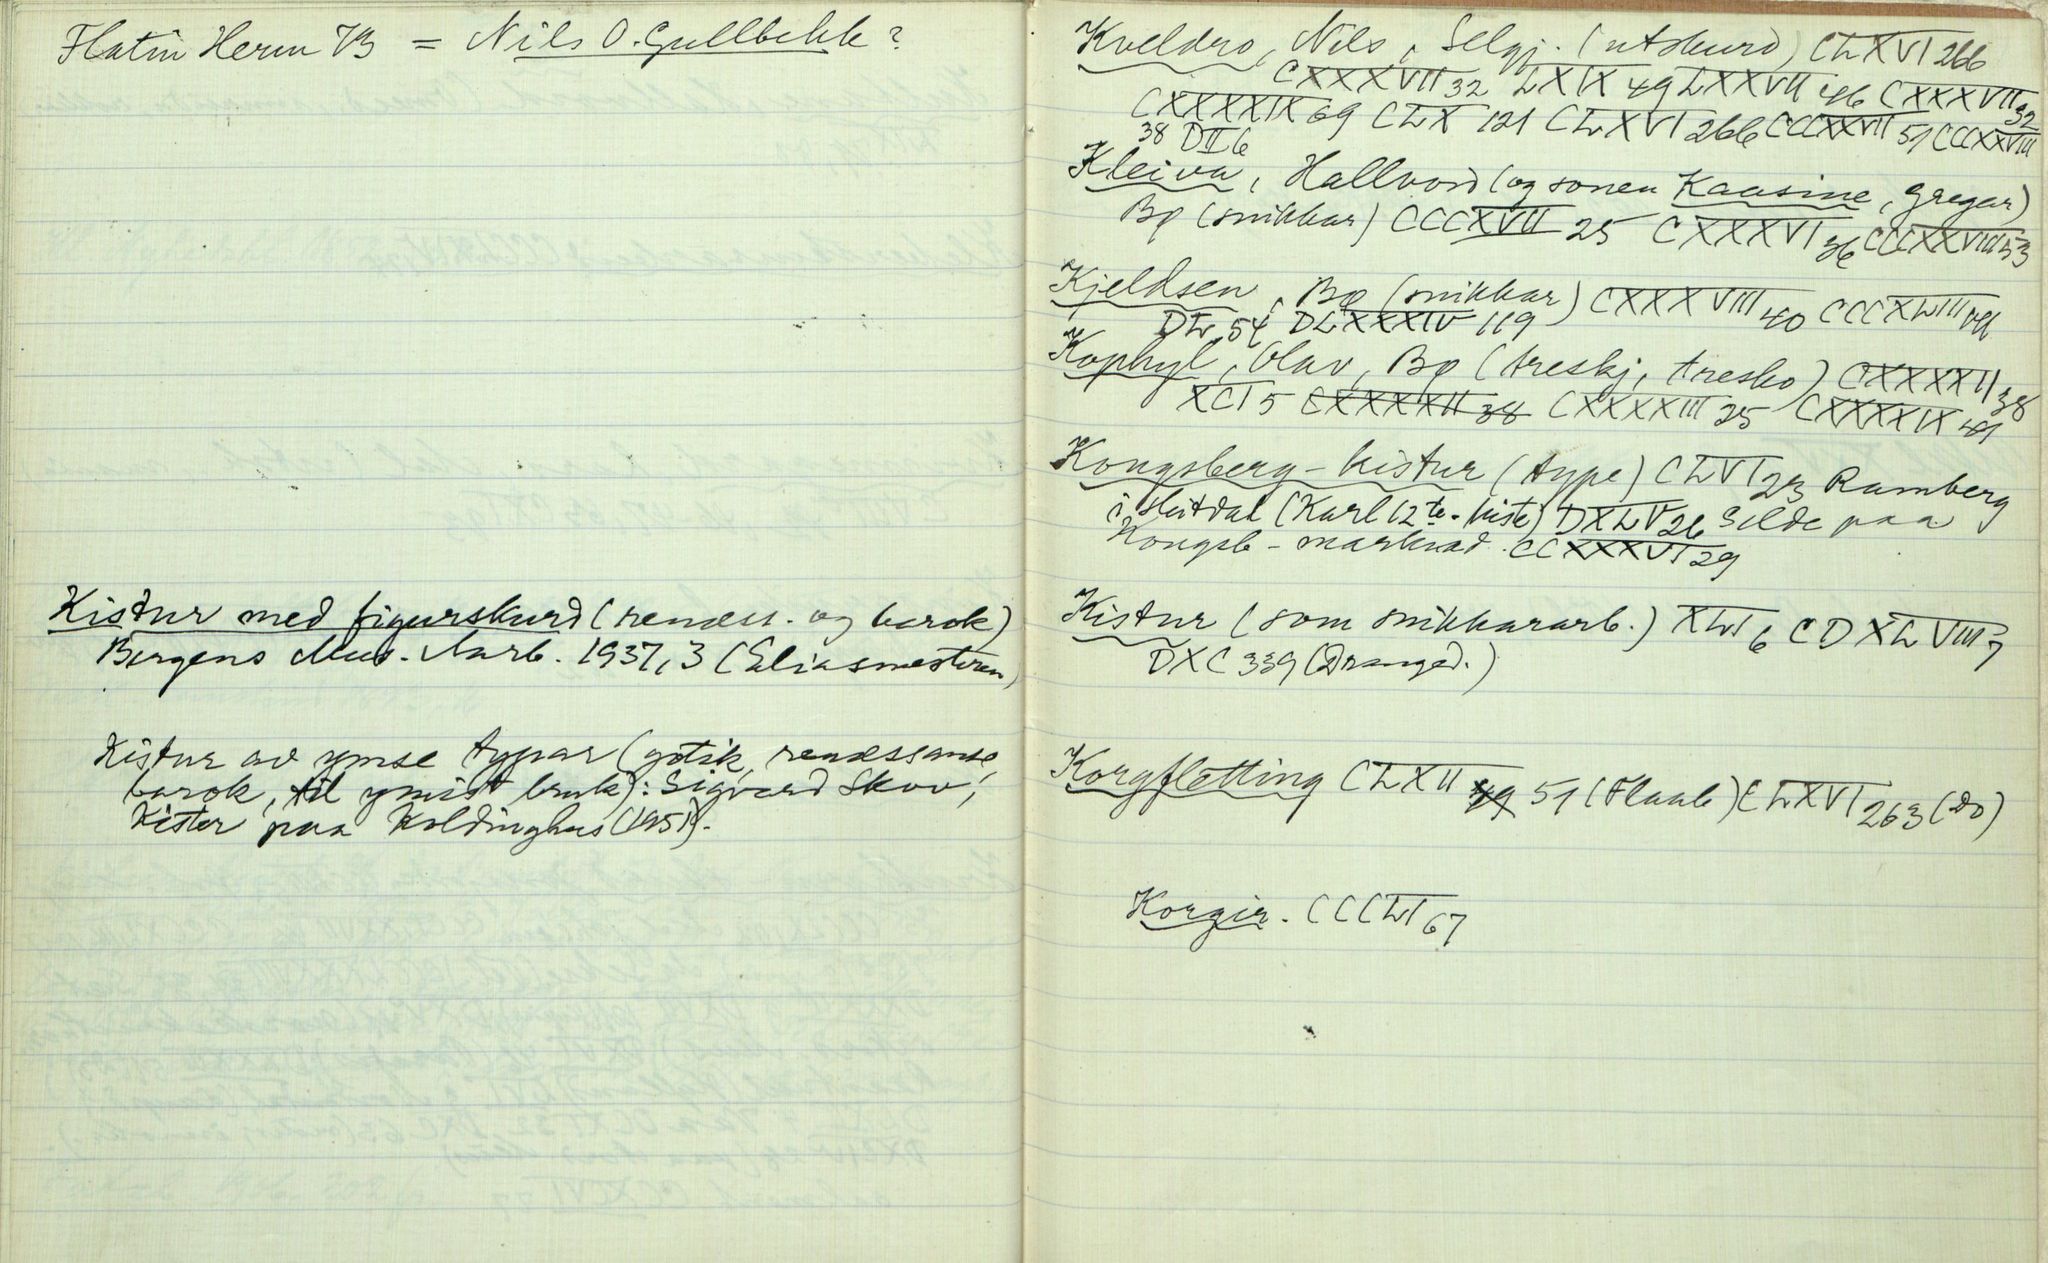 Flatin Herm 73 = Nils O. Gullbekk?
Kistur med figurskurd (renæss. og barok)
Bergens Mus. Aarb. 1937, 3 (Eliasmesteren)
Kistur av ymse typar (gotik, renæssanse,
barok, til ymist bruk): Sigvard Skov,
Kister paa Koldinghus (1951).
Kveldro, Nils, Selgj. (utskurd) CLXVI 266
CXXXVII 32 LXIX 49 LXXVII 46 CXXXVII 32
CXXXXIX 69 CLX 121 CLXVI 266 CCCXXVII 51 CCCXXVIII
38 DII 6
Kleiva, Hallvord (og sonen Kaasine, Gregar)
Bø (snikkar) CCCXVII 25 CXXXVI 36 CCCXXVIII 53
Kjeldsen, Bø (snikkar) CXXXVIII 40 CCCXLIII
DL 54 DLXXXIV 119
Kophyl, Olav, Bø (treskj, tresko) CXXXXII 38
XCI 5 CXXXXII 38 CXXXXIII 25 CXXXXIX 41
Kongsberg-kistur (type) CLVI 23 Ramberg
i Hitdal (Karl 12te-kiste) DXLV 26 Selde paa
Kongsb-marknad. CCXXXVI 29
Kistur (som snikkararb.) XLI 6 CDXLVIII 7
DXC 339 (Dranged.)
Korgfletting CLXII 49 51 (Flaab) CLXVI 263 (Do)
Korgir. CCCLI 67